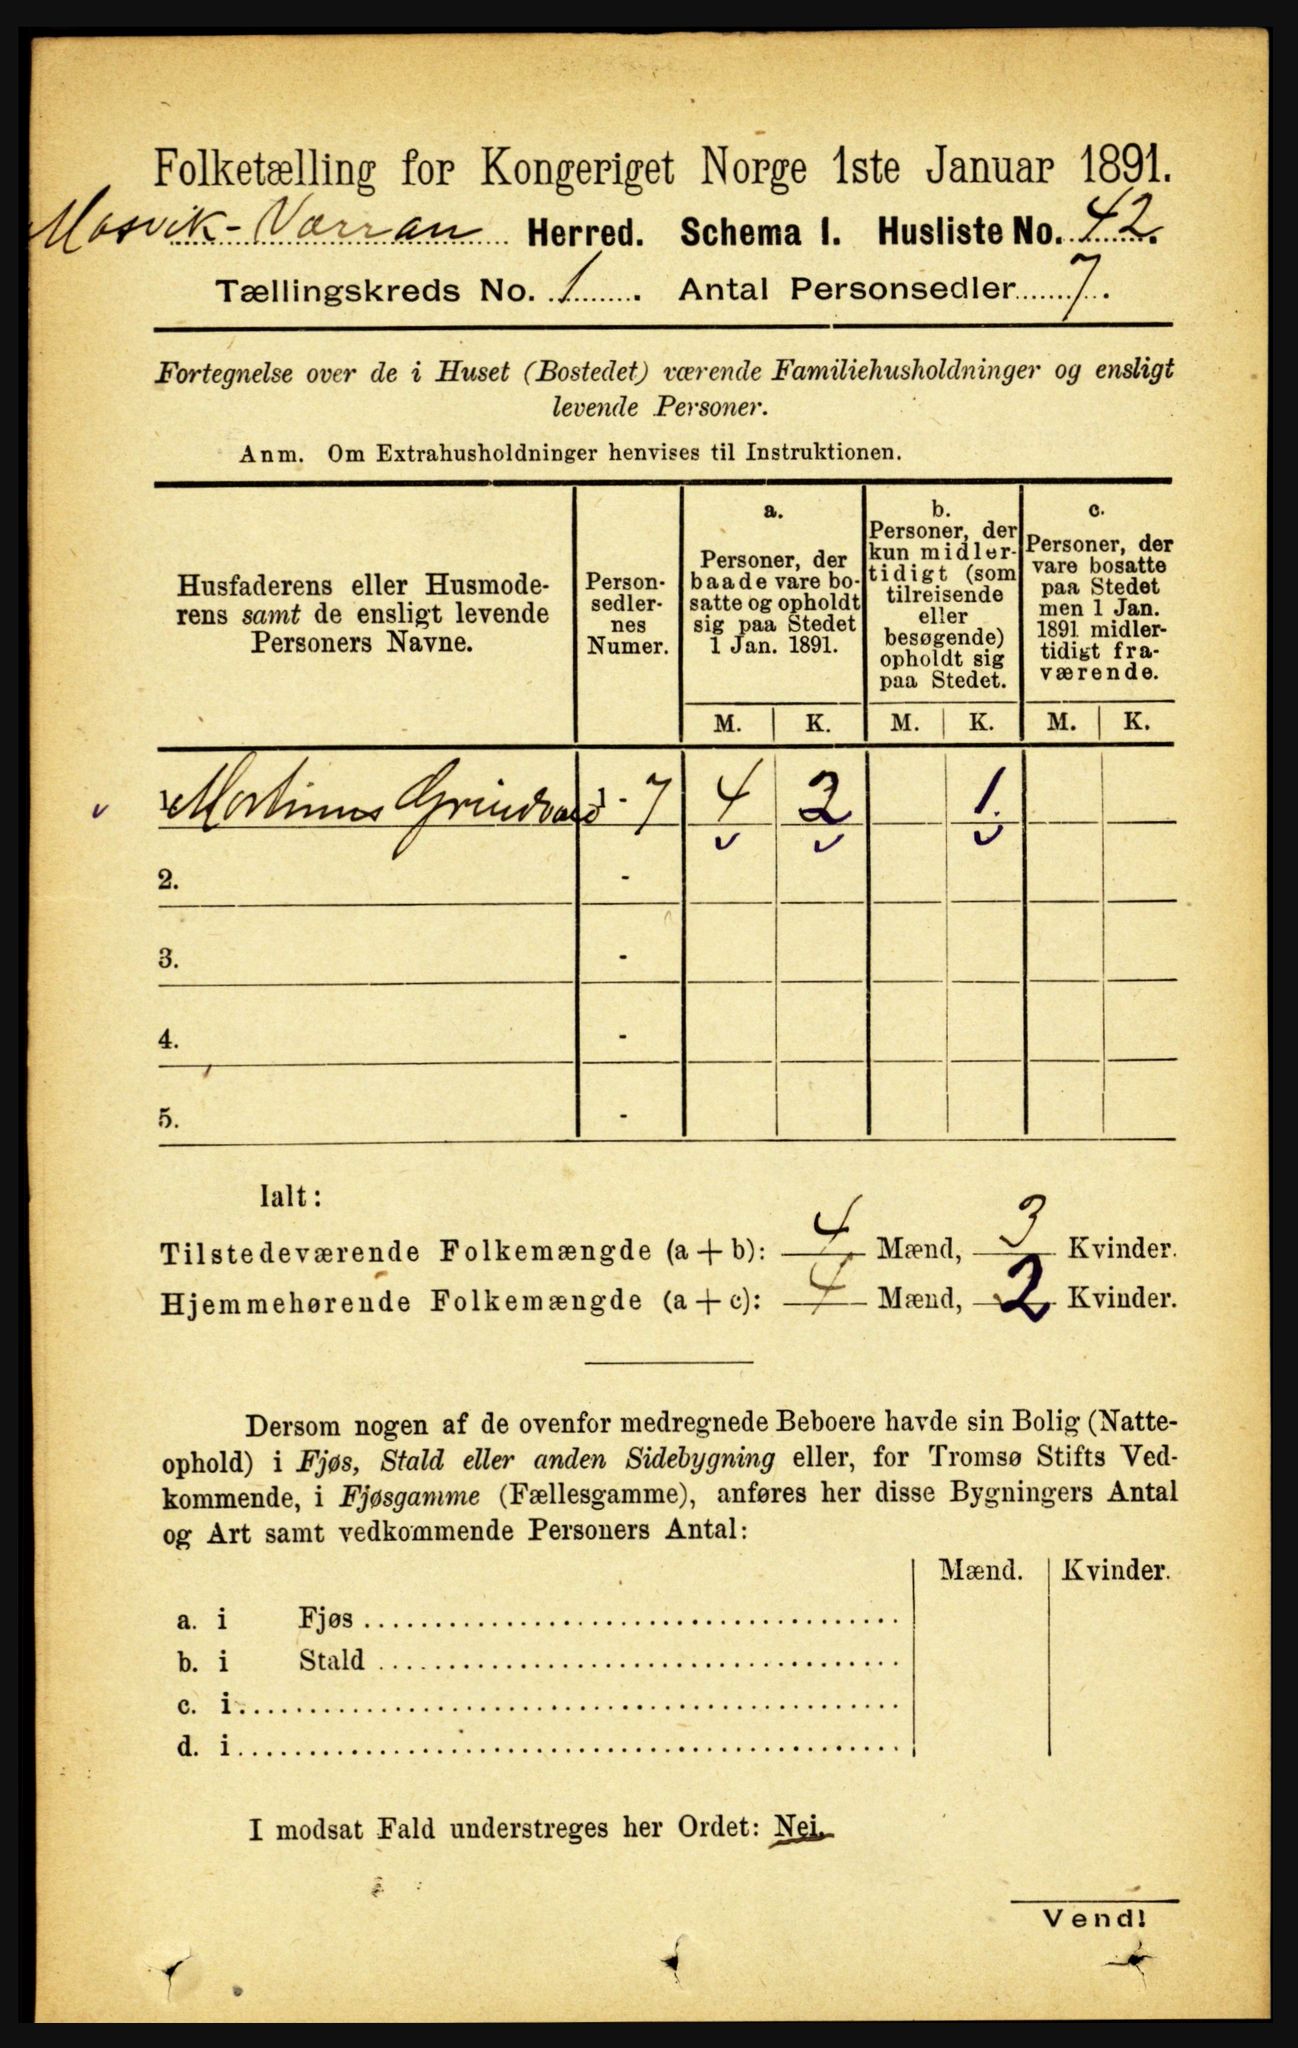 Folketælling for Kongeriget Norge 1ste Januar 1891.
Mosvik-Værran Herred. Schema I. Husliste No. 42.
Tællingskreds No. 1. Antal Personsedler 7.
Fortegnelse over de i Huset (Bostedet) værende Familiehusholdninger og ensligt
levende Personer.
Anm. Om Extrahusholdninger henvises til Instruktionen.
Husfaderens eller Husmode-
rens samt de ensligt levende
Personers Navne.
Person-
sedler-
nes
Numer.
a.
Personer, der
baade vare bo-
satte og opholdt
sig paa Stedet
1 Jan. 1891.
b.
Personer, der
kun midler-
tidigt (som
tilreisende
eller
besøgende)
opholdt sig
paa Stedet.
c.
Personer, der
vare bosatte
paa Stedet
men 1 Jan.
1891 midler-
tidigt fra-
værende.
M. K. M. K. M. K.
1. Martinus 1 - 7 4 2 1.
2. -
3. -
4. -
5. -
Ialt:
Tilstedeværende Folkemængde (a + b): 4 Mænd, 3 Kvinder.
Hjemmehørende Folkemængde (a + c): 4 Mænd, 2 Kvinder.
Dersom nogen af de ovenfor medregnede Beboere havde sin Bolig (Natte-
ophold) i Fjøs, Stald eller anden Sidebygning eller, for Tromsø Stifts Ved-
kommende, i Fjøsgamme (Fællesgamme), anføres her disse Bygningers Antal
og Art samt vedkommende Personers Antal:
Mænd. Kvinder.
a. i Fjøs
b. i Stald
c. i
d. i
I modsat Fald understreges her Ordet: Nei.
Vend!